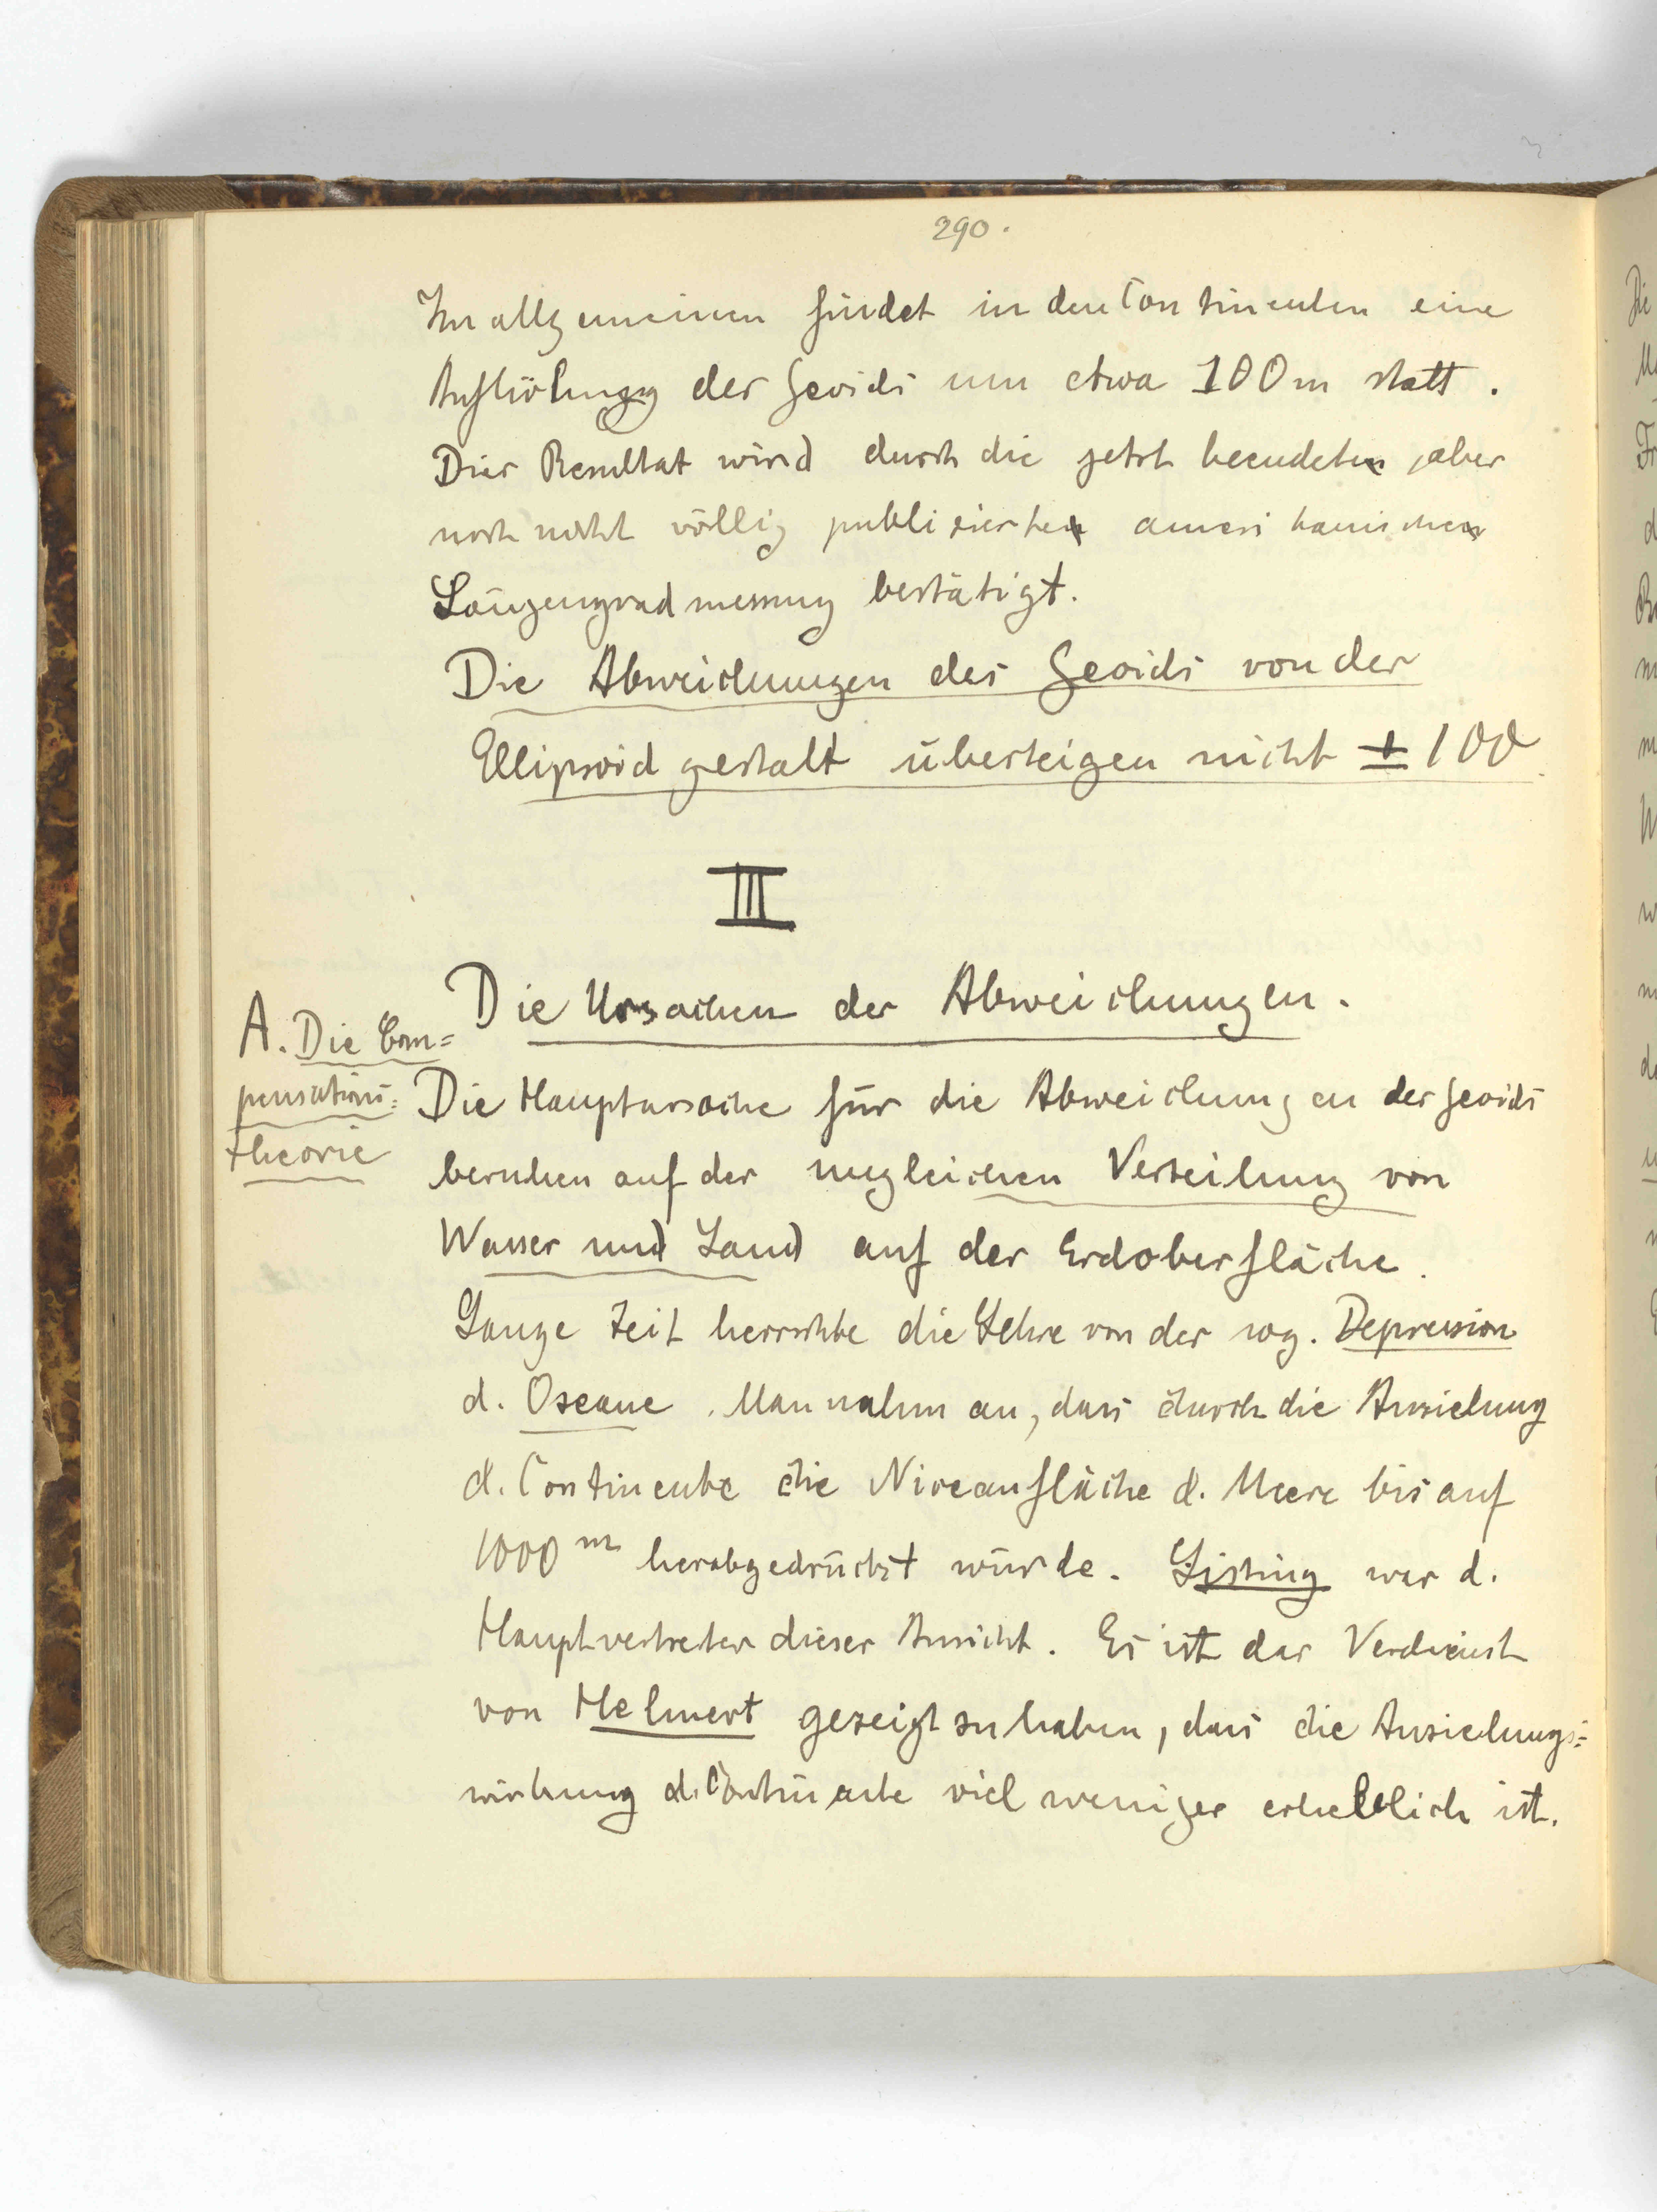 290.
Im allgemeinen findet in den Continenten eine
Aufhöhung des Geoids um etwa 100 m statt.
Dies Resultat wird durch die jetzt beendete, aber
noch nicht völlig publizierte amerikanische
Längengradmessung bestätigt.
Die Abweichungen des Geoids von der
Ellipsoidgestalt übersteigen nicht ± 100
III
Die Ursachen der Abweichungen.
A. Die Com=
pensations=
theorie
Die Hauptursache für die Abweichungen des Geoids
beruhen auf der ungleichen Verteilung von
Wasser und Land auf der Erdoberfläche.
Lange Zeit herrschte die Lehre von der sog. Depression
d. Oseane. Man nahm an, dass durch die Anziehung
d. Continente die Niveaufläche d. Meere bis auf
1000 m herabgedrückt würde. Listing war d.
Hauptvertreter dieser Ansicht. Es ist das Verdienst
von Helmert gezeigt zu haben, dass die Anziehungs=
wirkung d. Continente viel weniger erheblich ist.